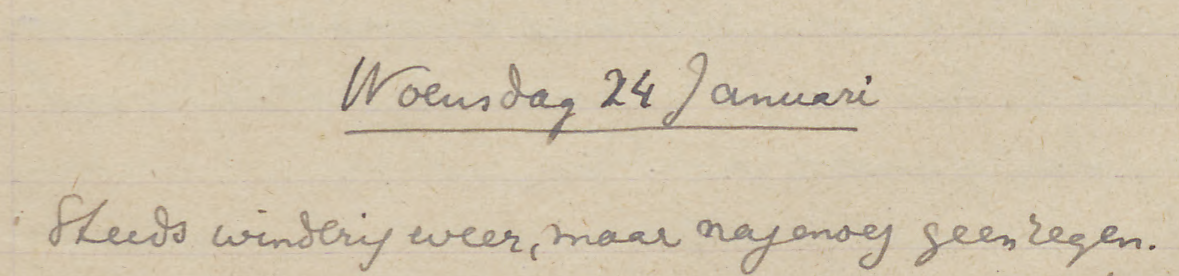 Woensdag 24 Januari
Steeds winderig weer, maar nagenoeg geen regen.